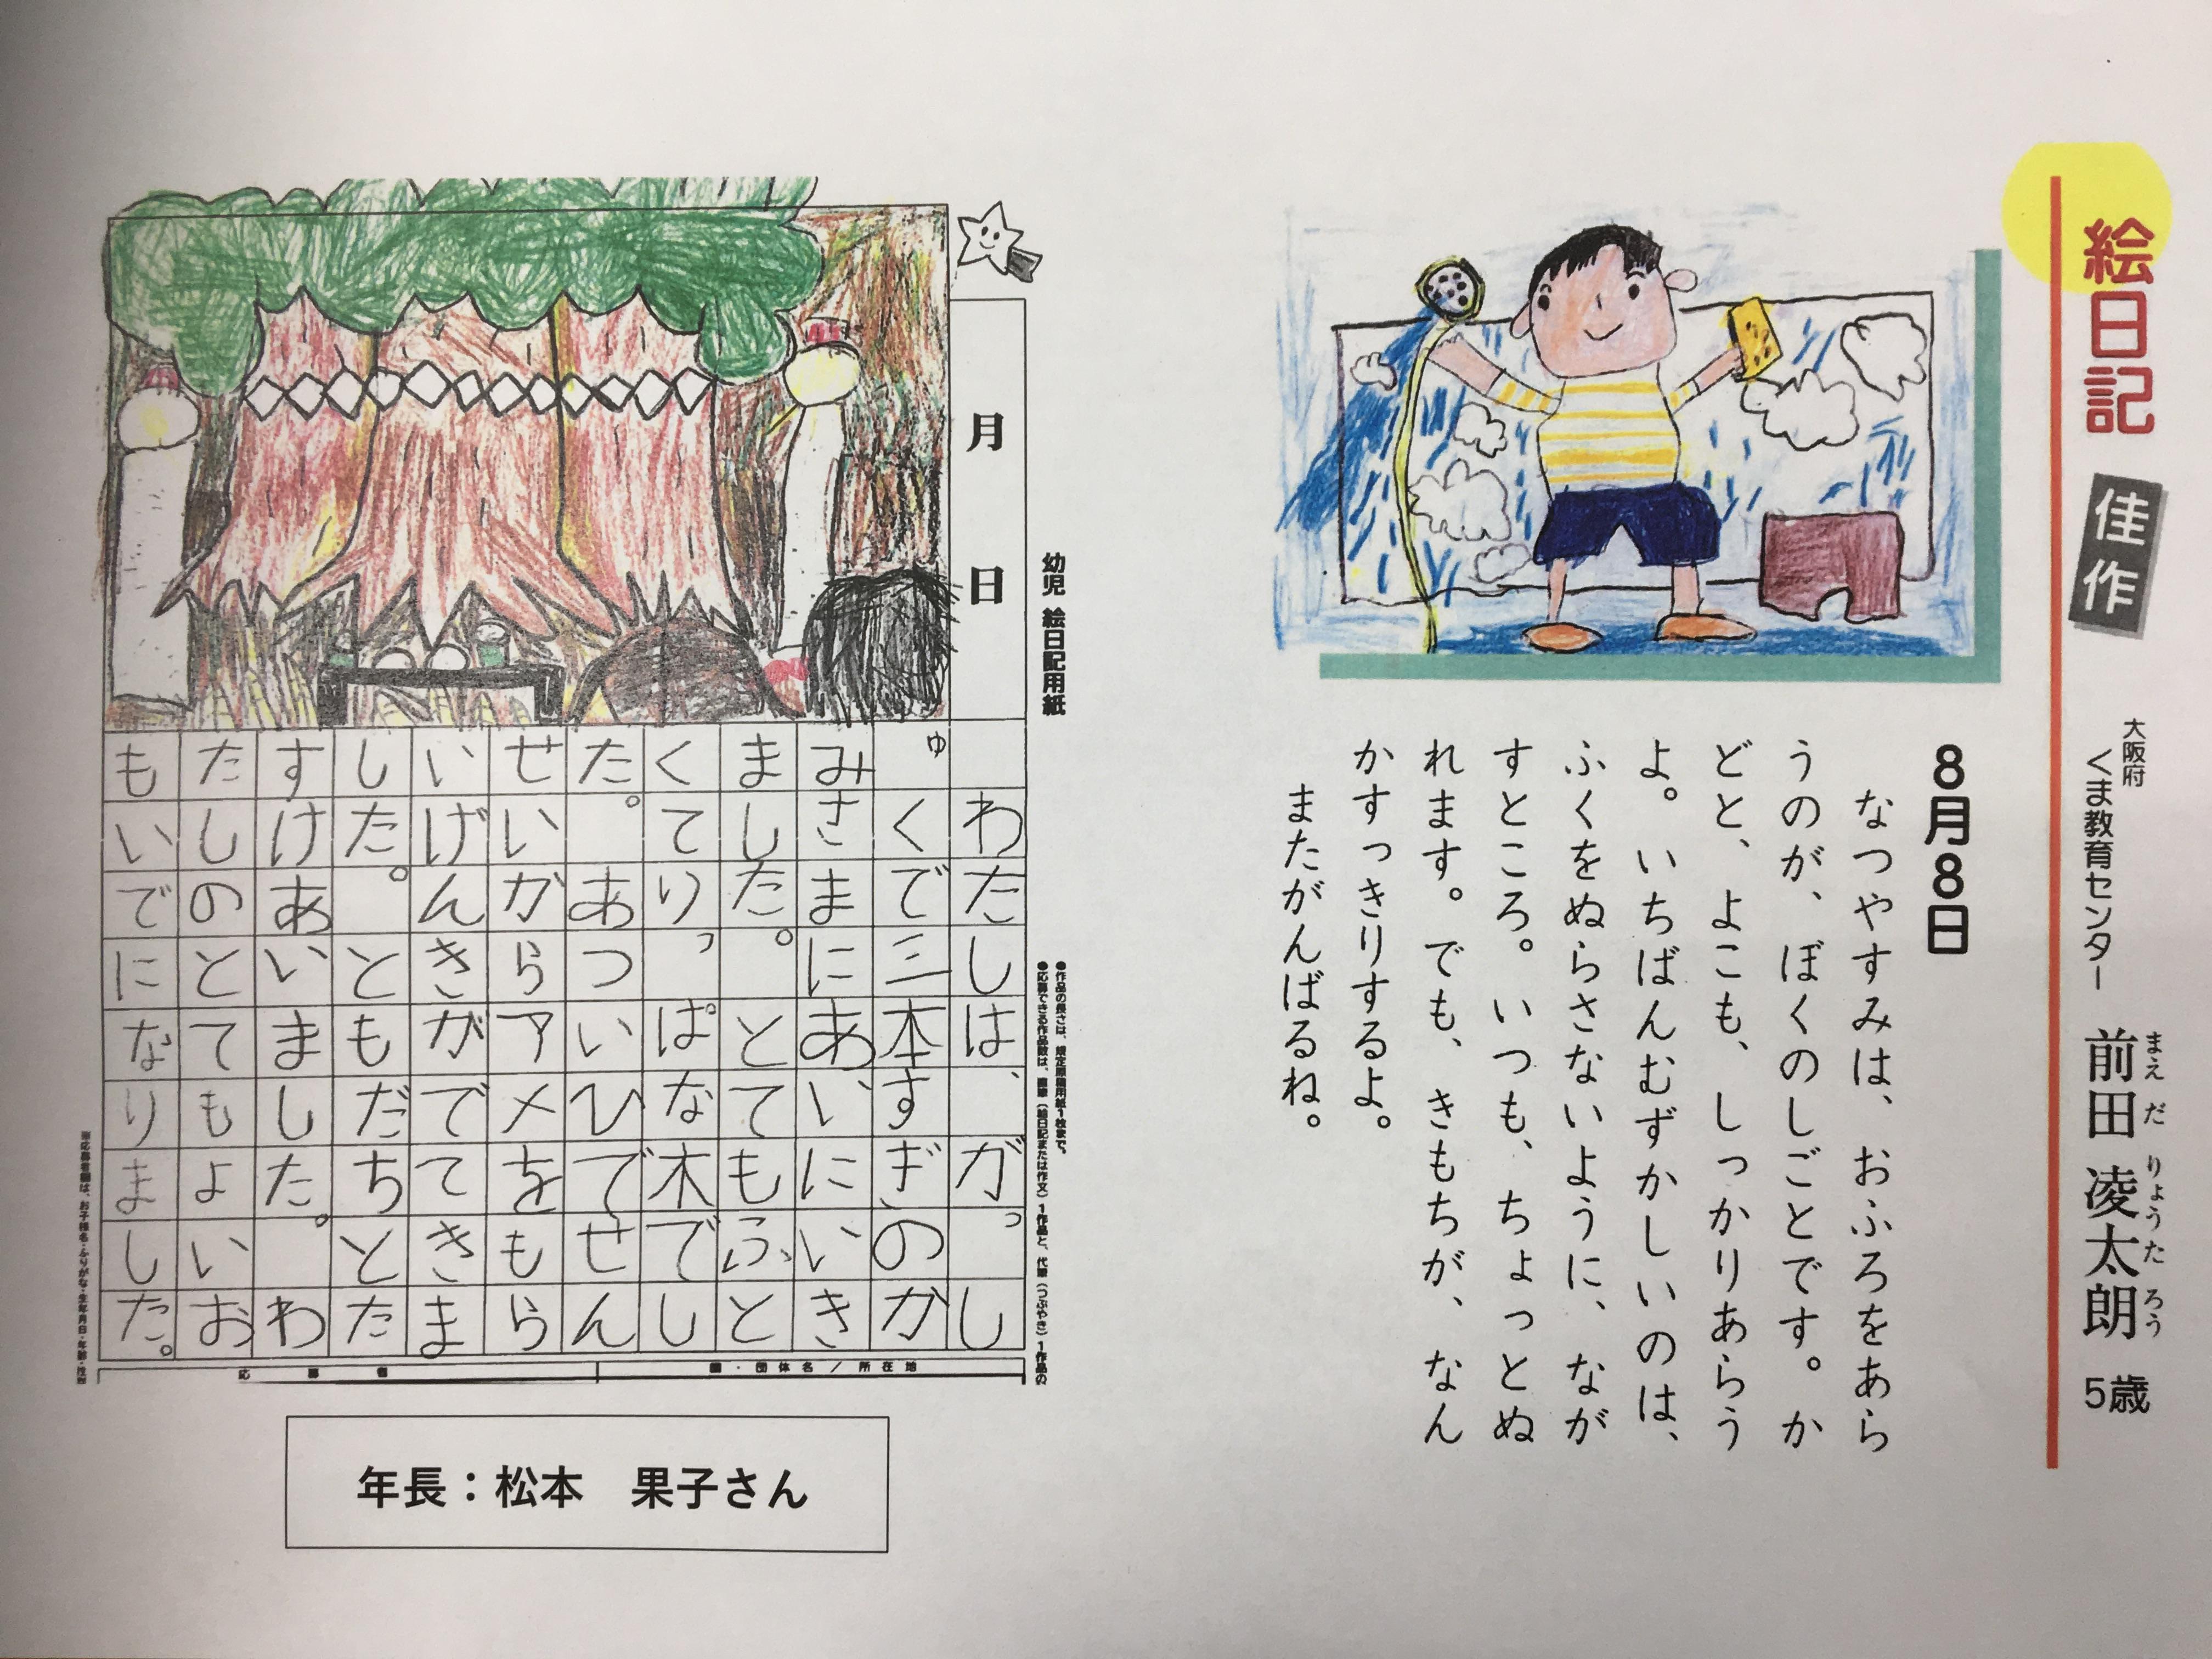 絵日記 佳作
大阪府
くま教育センター
前田 凌太朗 5歳
まえ だ りょうた ろう
8月8日
なつやすみは、おふろをあら
うのが、ぼくのしごとです。か
どと、よこも、しっかりあらう
よ。いちばんむずかしいのは、
ふくをぬらさないように、なが
すところ。いつも、ちょっとぬ
れます。でも、きもちが、なん
かすっきりするよ。
またがんばるね。
幼児 絵日記用紙
●作品の長さは、規定原稿用紙1枚まで。
●応募できる作品数は、直筆(絵日記または作文)1作品と、代筆(つぶやき)1作品の
月 日
わたしは、がっし
ゅくで三本すぎのか
みさまにあいにいき
ました。とてもふと
くてりっぱな木でし
た。あついひでせん
せいがらアメをもら
いげんきがでてきま
した。ともだちとた
すけあいました。わ
たしのとてもよいお
もいでになりました。
園・団体名/所在地
応募者
※応募者欄は、お子様名・ふりがな・生年月日・年齢・性別
年長:松本 果子さん